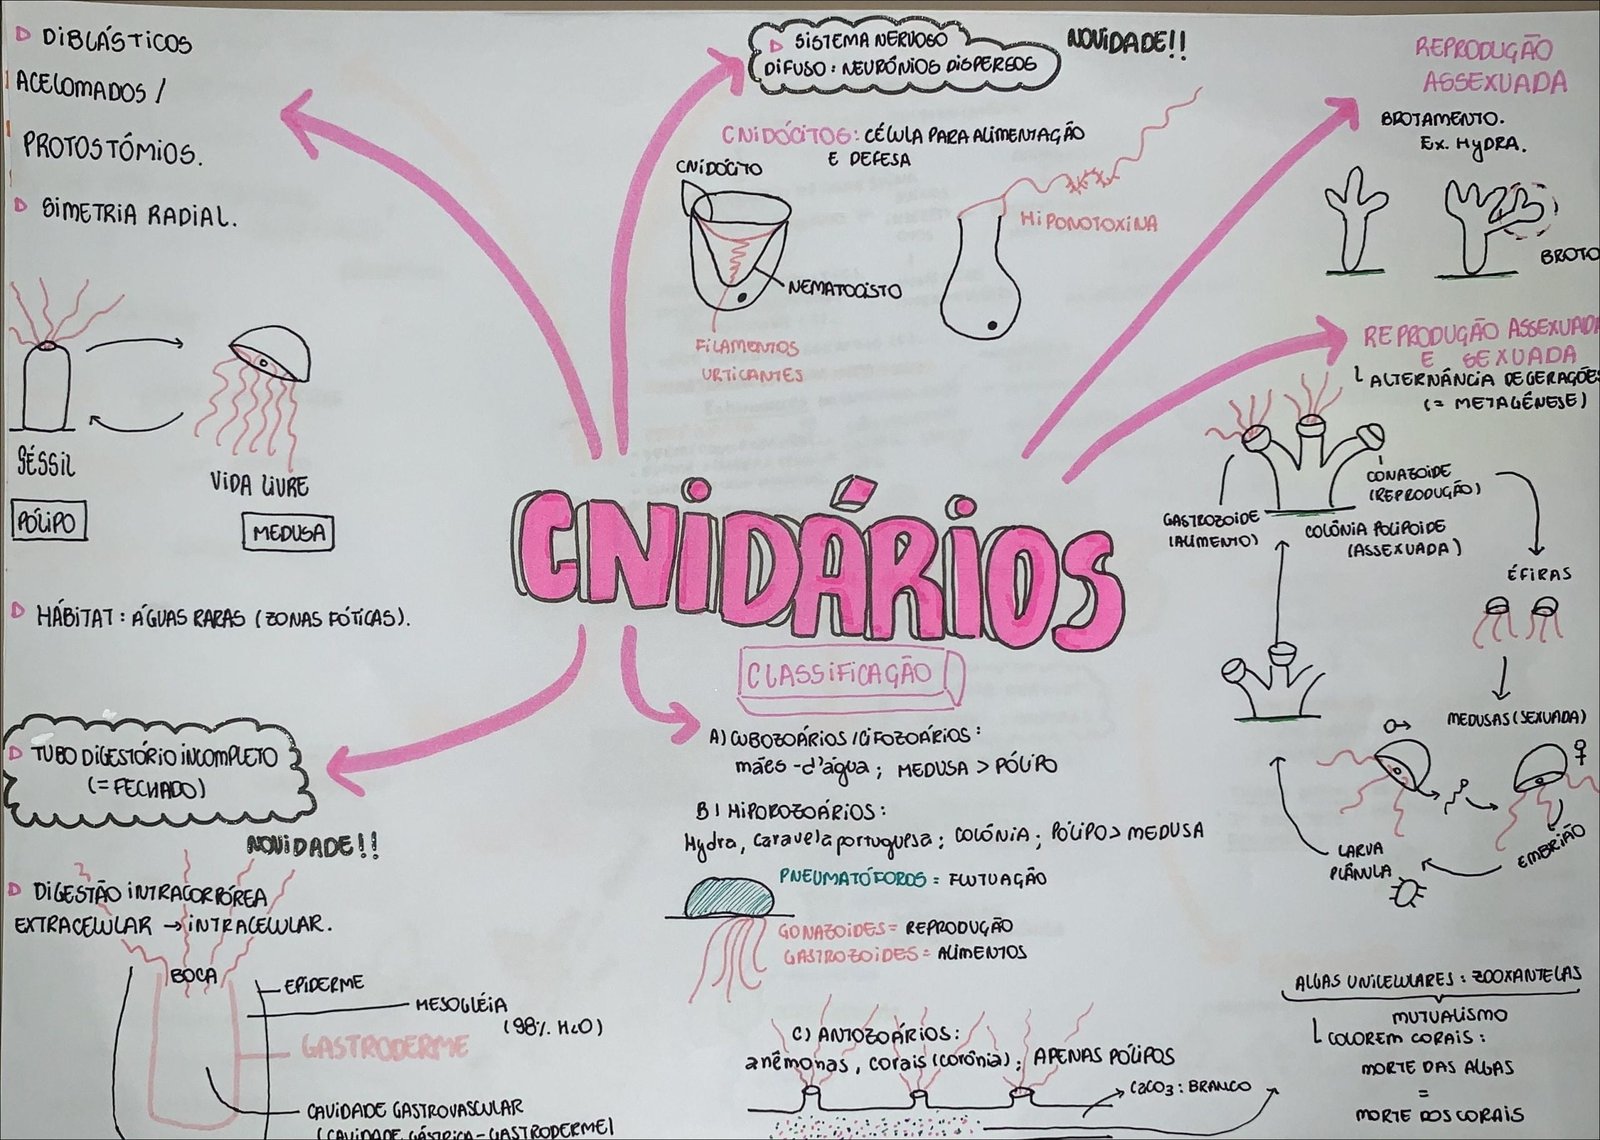 DIBLÁSTICOS
ACELOMADOS /
PROTOSTÔMIOS.
SIMETRIA RADIAL.
SÉSSIL
PÓLIPO
VIDA LIVRE
MEDUSA
HÁBITAT: ÁGUAS RARAS (ZONAS FÓTICAS).
TUBO DIGESTÓRIO INCOMPLETO
(= FECHADO)
NOVIDADE!!
DIGESTÃO INTRACORPÓREA
EXTRACELULAR → INTRACELULAR.
BOCA
EPIDERME
MESOGLÉIA
(98% H2O)
GASTRODERME
CAVIDADE GASTROVASCULAR
(CAVIDADE GÁSTRICA - GASTRODERME)
SISTEMA NERVOSO
DIFUSO: NEURÔNIOS DISPERSOS
NOVIDADE!!
CNIDÓCITOS: CÉLULA PARA ALIMENTAÇÃO
E DEFESA
CNIDÓCITO
NEMATOCISTO
FILAMENTOS
URTICANTES
HIPONOTOXINA
CNIDÁRIOS
CLASSIFICAÇÃO
A) CUBOZOÁRIOS / CIFOZOÁRIOS:
mães-d'água; MEDUSA > PÓLIPO
B) HIPOROZOÁRIOS:
Hydra, Caravela portuguesa; COLÔNIA; PÓLIPO > MEDUSA
PNEUMATÓFOROS = FLUTUAÇÃO
GONAZOIDES = REPRODUÇÃO
GASTROZOIDES = ALIMENTOS
C) ANTOZOÁRIOS:
anêmonas, corais (corônia); APENAS PÓLIPOS
C2CO3: BRANCO
REPRODUÇÃO
ASSEXUADA
BROTAMENTO.
Ex. HYDRA.
BROTO
REPRODUÇÃO ASSEXUADA
E SEXUADA
ALTERNÂNCIA DE GERAÇÕES
(= METAGÊNESE)
GONAZOIDE
(REPRODUÇÃO)
GASTROZOIDE
(ALIMENTO)
COLÔNIA POLIPOIDE
(ASSEXUADA)
ÉFIRAS
MEDUSAS (SEXUADA)
♂
♀
EMBRIÃO
LARVA
PLÂNULA
ALGAS UNICELULARES: ZOOXANTELAS
MUTUALISMO
COLOREM CORAIS:
MORTE DAS ALGAS
=
MORTE DOS CORAIS